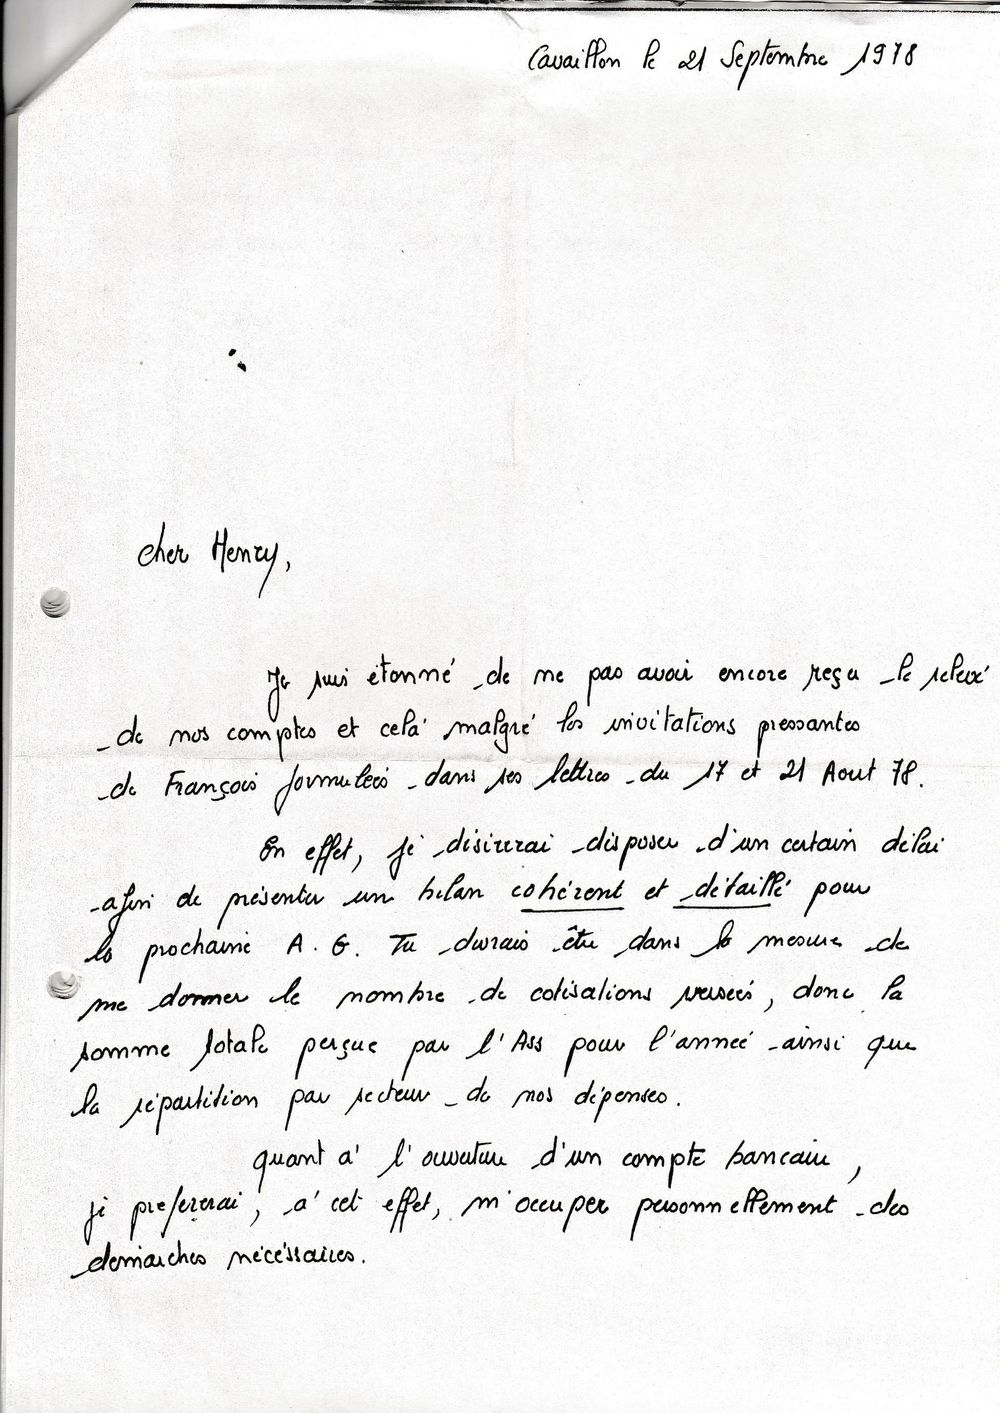 Cavaillon le 21 Septembre 1978
cher Henry,
Je suis étonné de ne pas avoir encore reçu le relevé
de nos comptes et celà malgré les invitations pressantes
de François formulées dans ses lettres du 17 et 21 Aout 78.
En effet, je désirerai disposer d'un certain délai
afin de présenter un bilan cohérent et détaillé pour
la prochaine A.G. Tu devrais être dans la mesure de
me donner le nombre de cotisations versées, donc la
somme totale perçue par l'Ass pour l'année ainsi que
la répartition par secteur de nos dépenses.
quant à l'ouverture d'un compte bancaire,
je prefererai, à cet effet, m'occuper personnellement des
demarches nécéssaires.